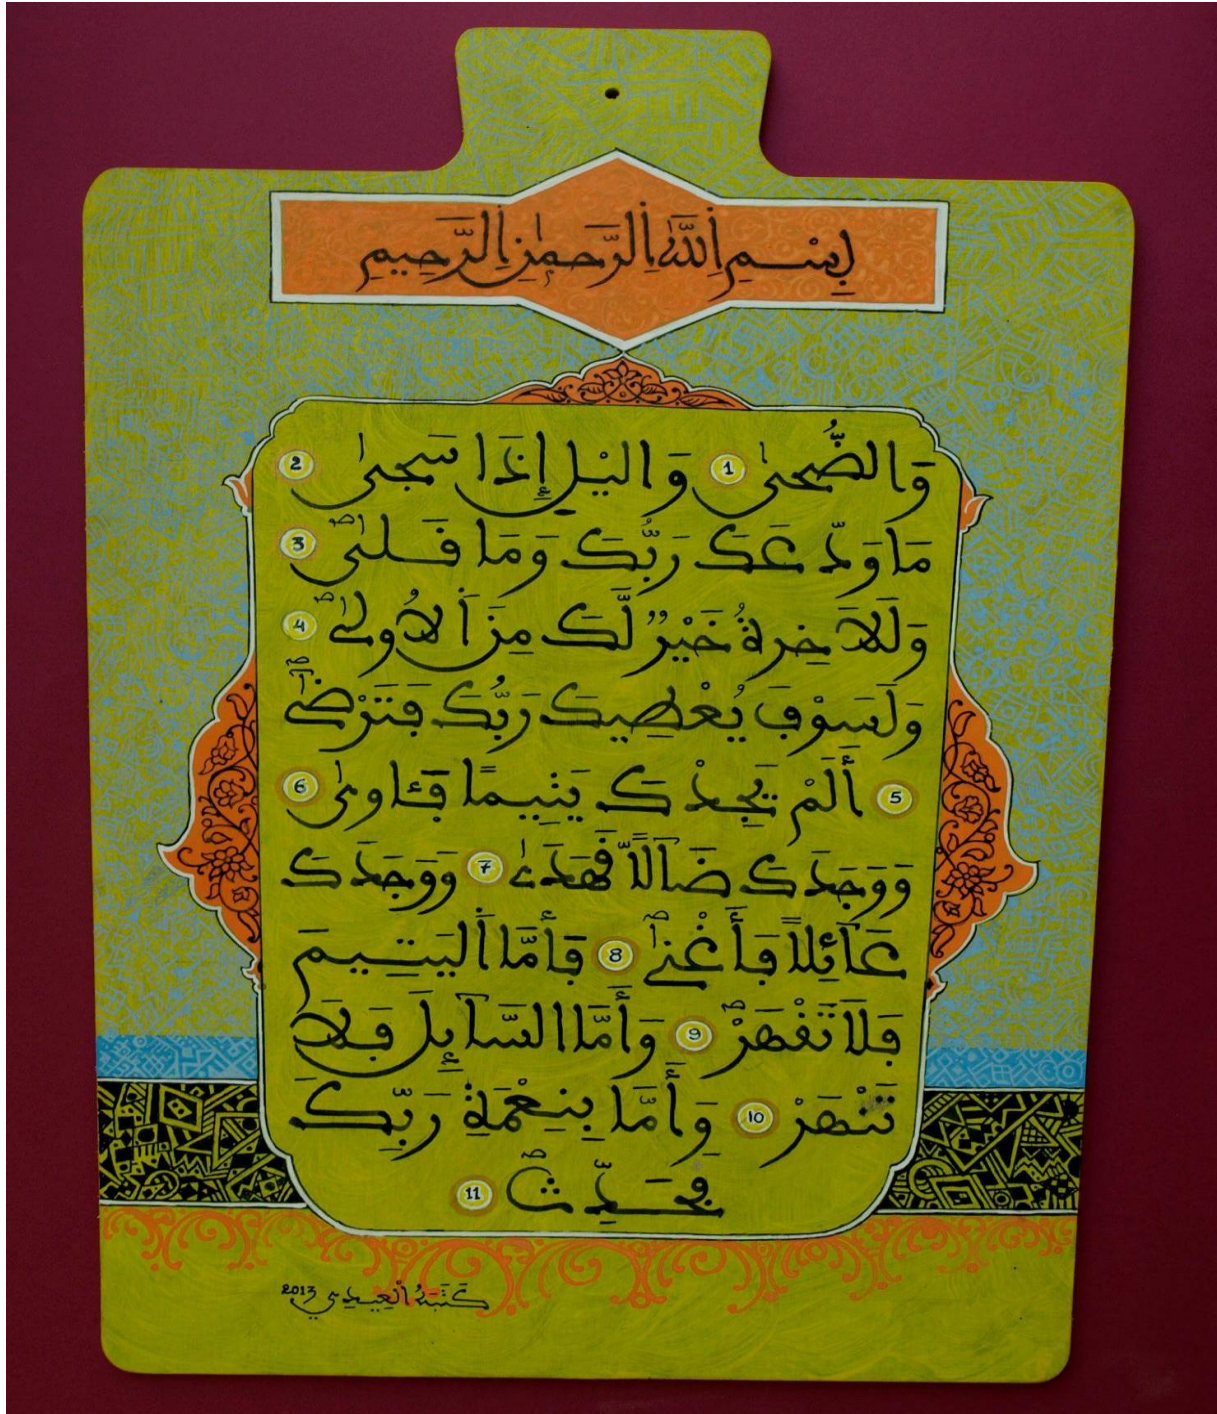 بِسْمِ اِللَّهِ اِلرَّحْمٰنِ اِلرَّحِيمِ
وَالضُّحىٰ 1 وَاليْلِ إِذَا سَجىٰ 2
مَا وَدَّعَكَ رَبُّكَ وَمَا قَلىٰ 3
وَلَلَاخِرةُ خَيْرٌ لَّكَ مِنَ اَلُاولىٰ 4
وَلَسَوْفَ يُعْطِيكَ رَبُّكَ فَتَرْضىٰ
5 أَلَمْ يَجِدْكَ يَتِيمًا فَـَٔاوىٰ 6
وَوَجَدَكَ ضَآلّاً فَهَدىٰ 7 وَوَجَدَكَ
عَآئِلاً فَأَغْنىٰ 8 فَأَمَّا اَليَتِيمَ
فَلَا تَقْهَرْ 9 وَأَمَّا السَّآئِلَ فَلَا
تَنْهَرْ 10 وَأَمَّا بِنِعْمَةِ رَبِّكَ
فَحَدِّثْ 11
كَتَبَهُ الْعِيدِي 2013